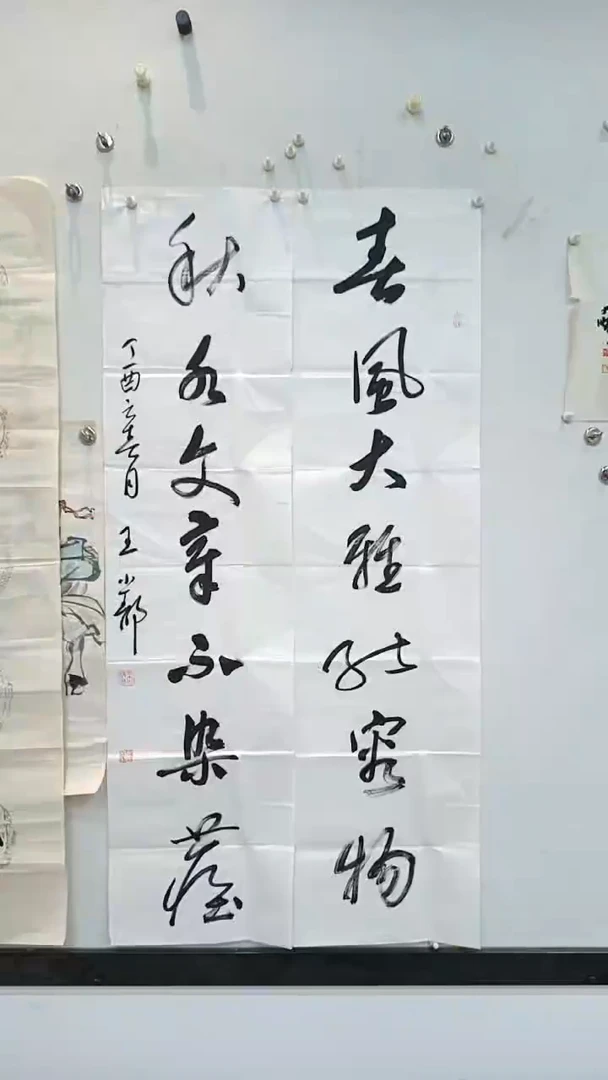 春風大雅能容物
秋水文章不染塵
丁酉 春月 王小